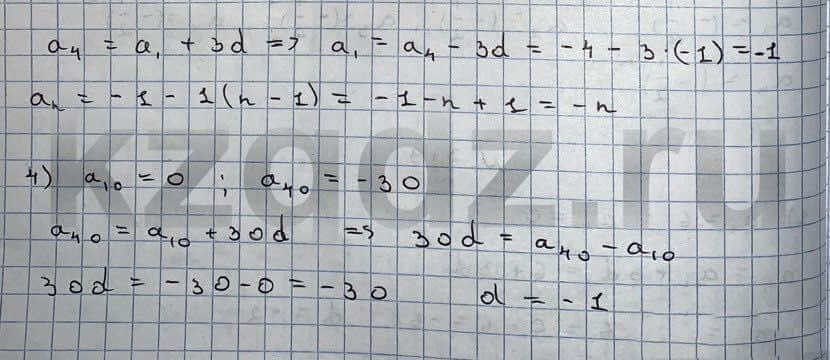 a₄ = a₁ + 3d => a₁ = a₄ - 3d = -4 - 3·(-1) = -1
aₙ = -1 - 1(n - 1) = -1 - n + 1 = -n
kzgdz.ru
4) a₁₀ = 0 ; a₄₀ = -30
a₄₀ = a₁₀ + 30d => 30d = a₄₀ - a₁₀
30d = -30 - 0 = -30 d = -1